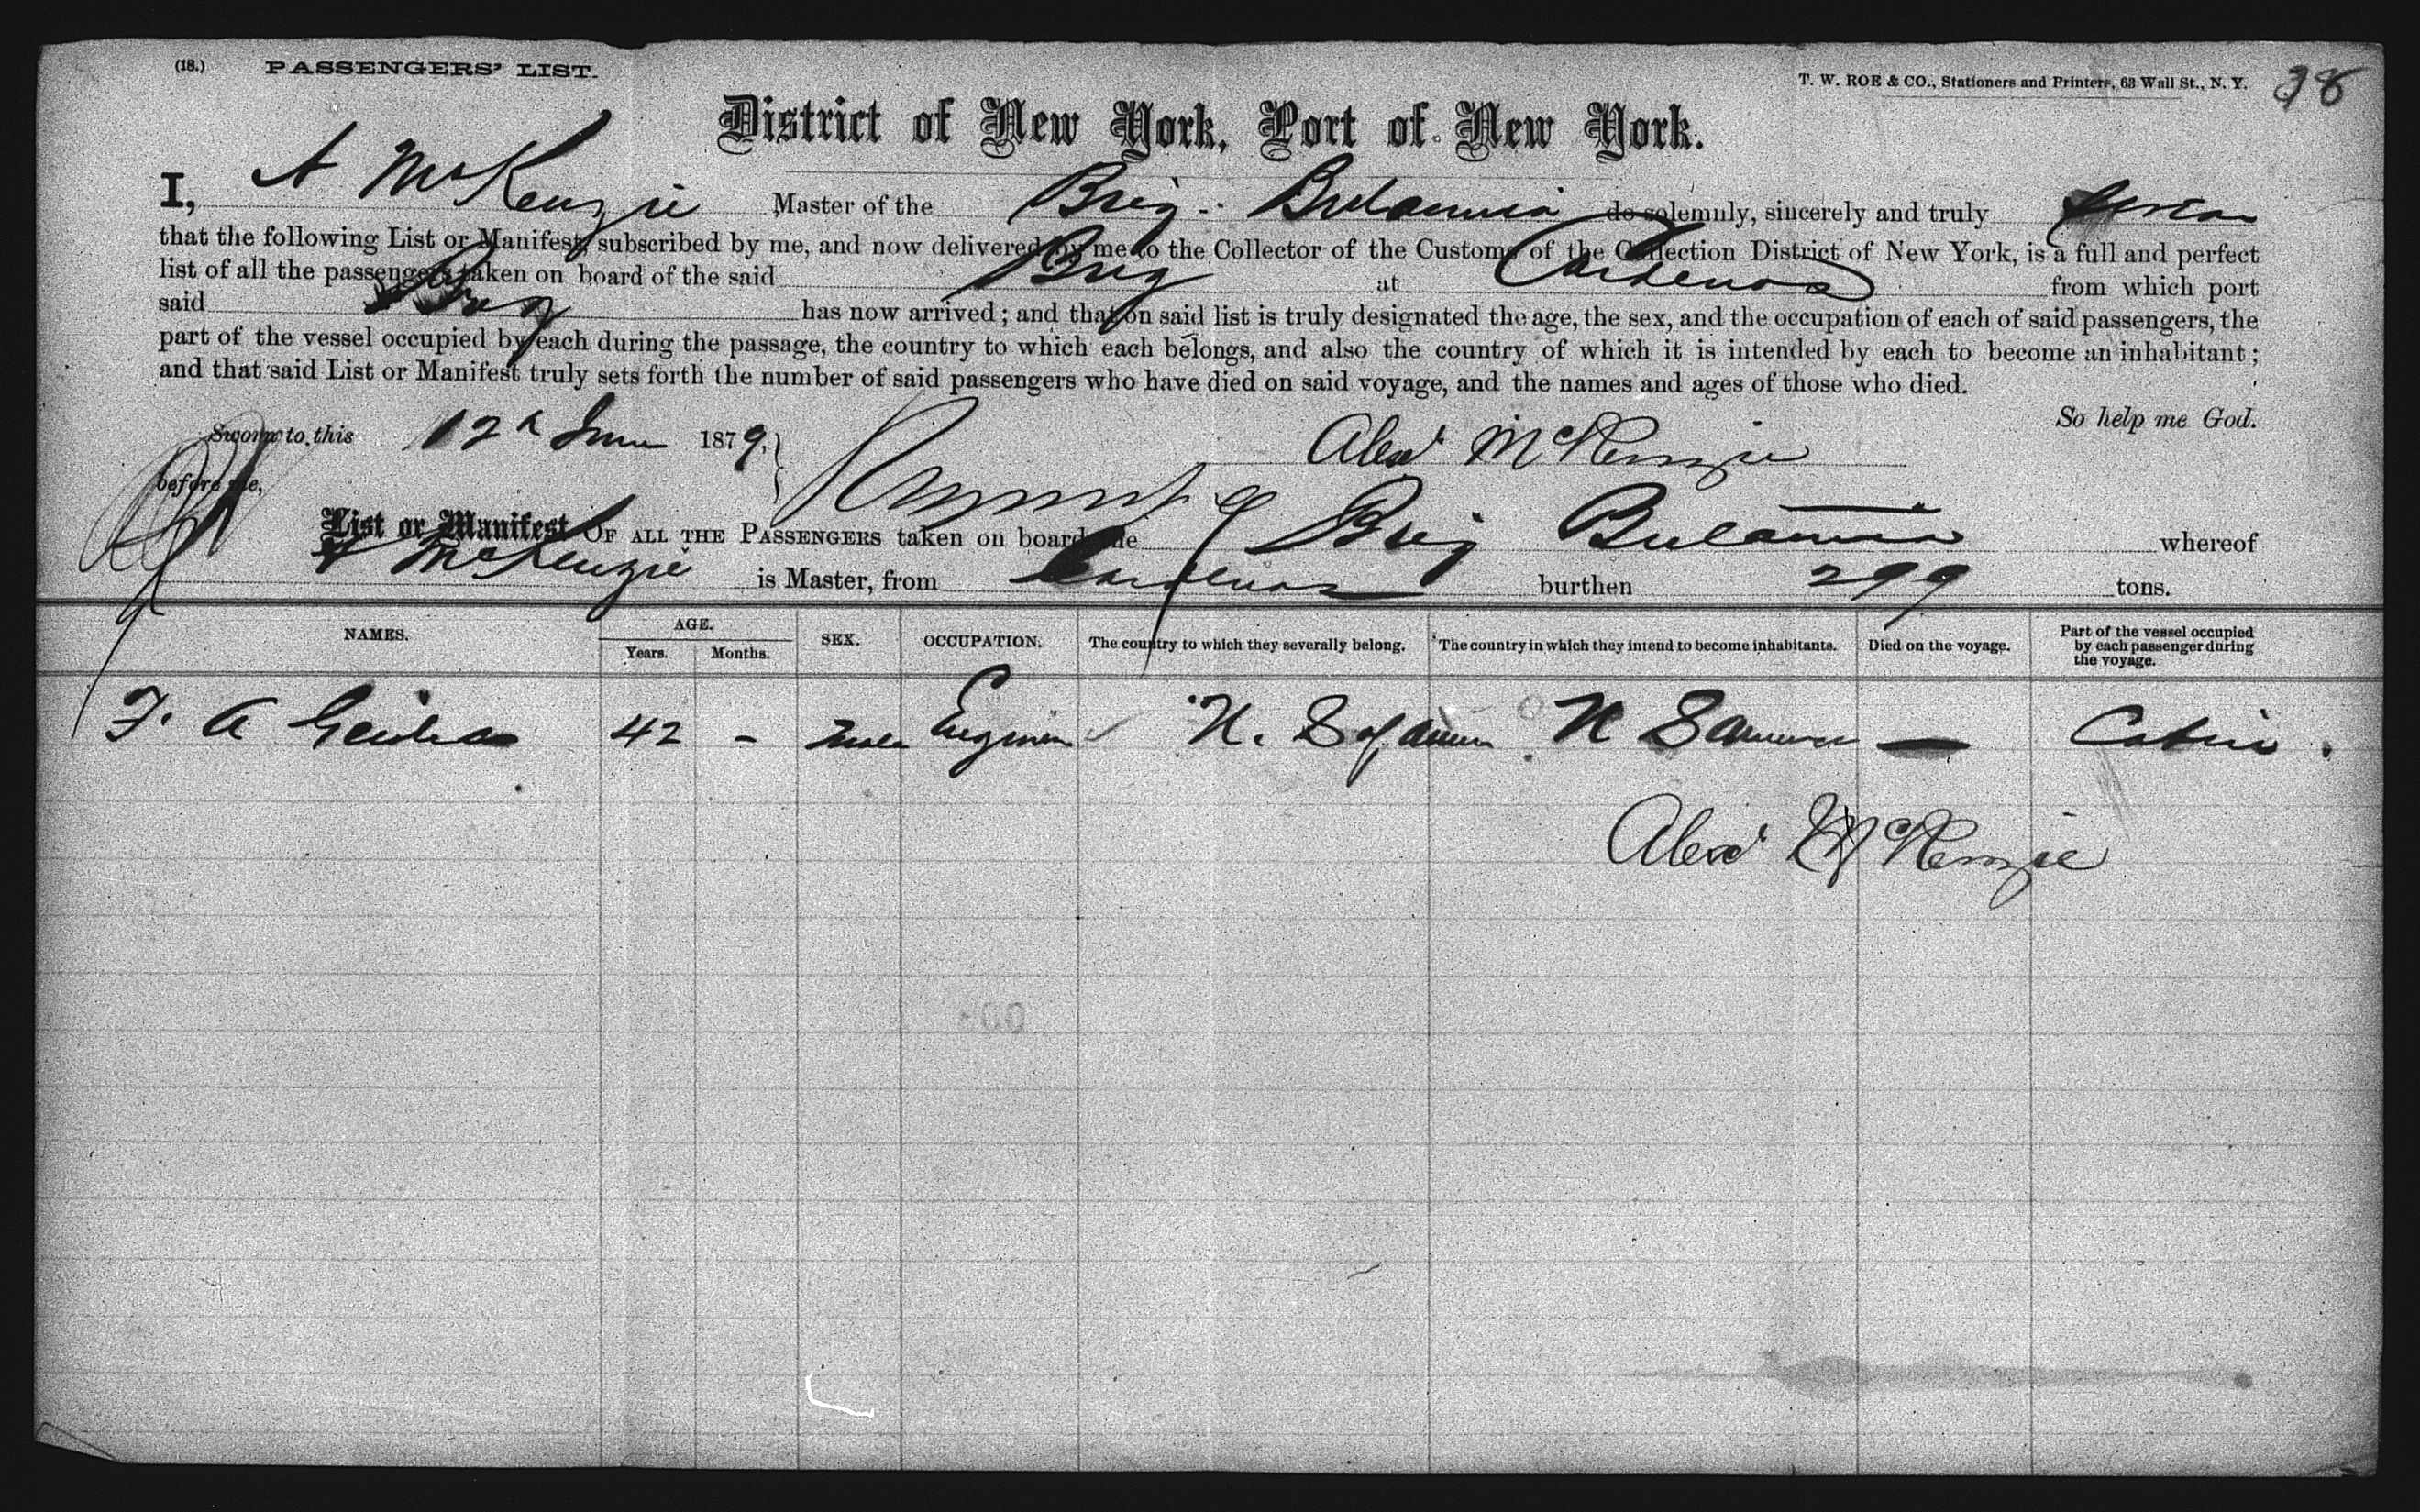 (18.) PASSENGERS' LIST.
T. W. ROE & CO., Stationers and Printers, 63 Wall St., N. Y.
District of New York, Port of New York.
I, A McKenzie Master of the Brig Britannia do solemnly, sincerely and truly swear
that the following List or Manifest, subscribed by me, and now delivered by me to the Collector of the Customs of the Collection District of New York, is a full and perfect
list of all the passengers taken on board of the said Brig at Cardenas from which port
said Brig has now arrived; and that on said list is truly designated the age, the sex, and the occupation of each of said passengers, the
part of the vessel occupied by each during the passage, the country to which each belongs, and also the country of which it is intended by each to become an inhabitant;
and that said List or Manifest truly sets forth the number of said passengers who have died on said voyage, and the names and ages of those who died.
So help me God.
Sworn to this 12h June 1879. Alexd McKenzie
before me,
List or Manifest OF ALL THE PASSENGERS taken on board the Brig Britannia whereof
A McKenzie is Master, from Cardenas burthen 299 tons.
NAMES. AGE. Years. Months. SEX. OCCUPATION. The country to which they severally belong. The country in which they intend to become inhabitants. Died on the voyage. Part of the vessel occupied by each passenger during the voyage.
F. A 42 - Male Engineer U. S of America U S America — Cabin.
Alexd McKenzie